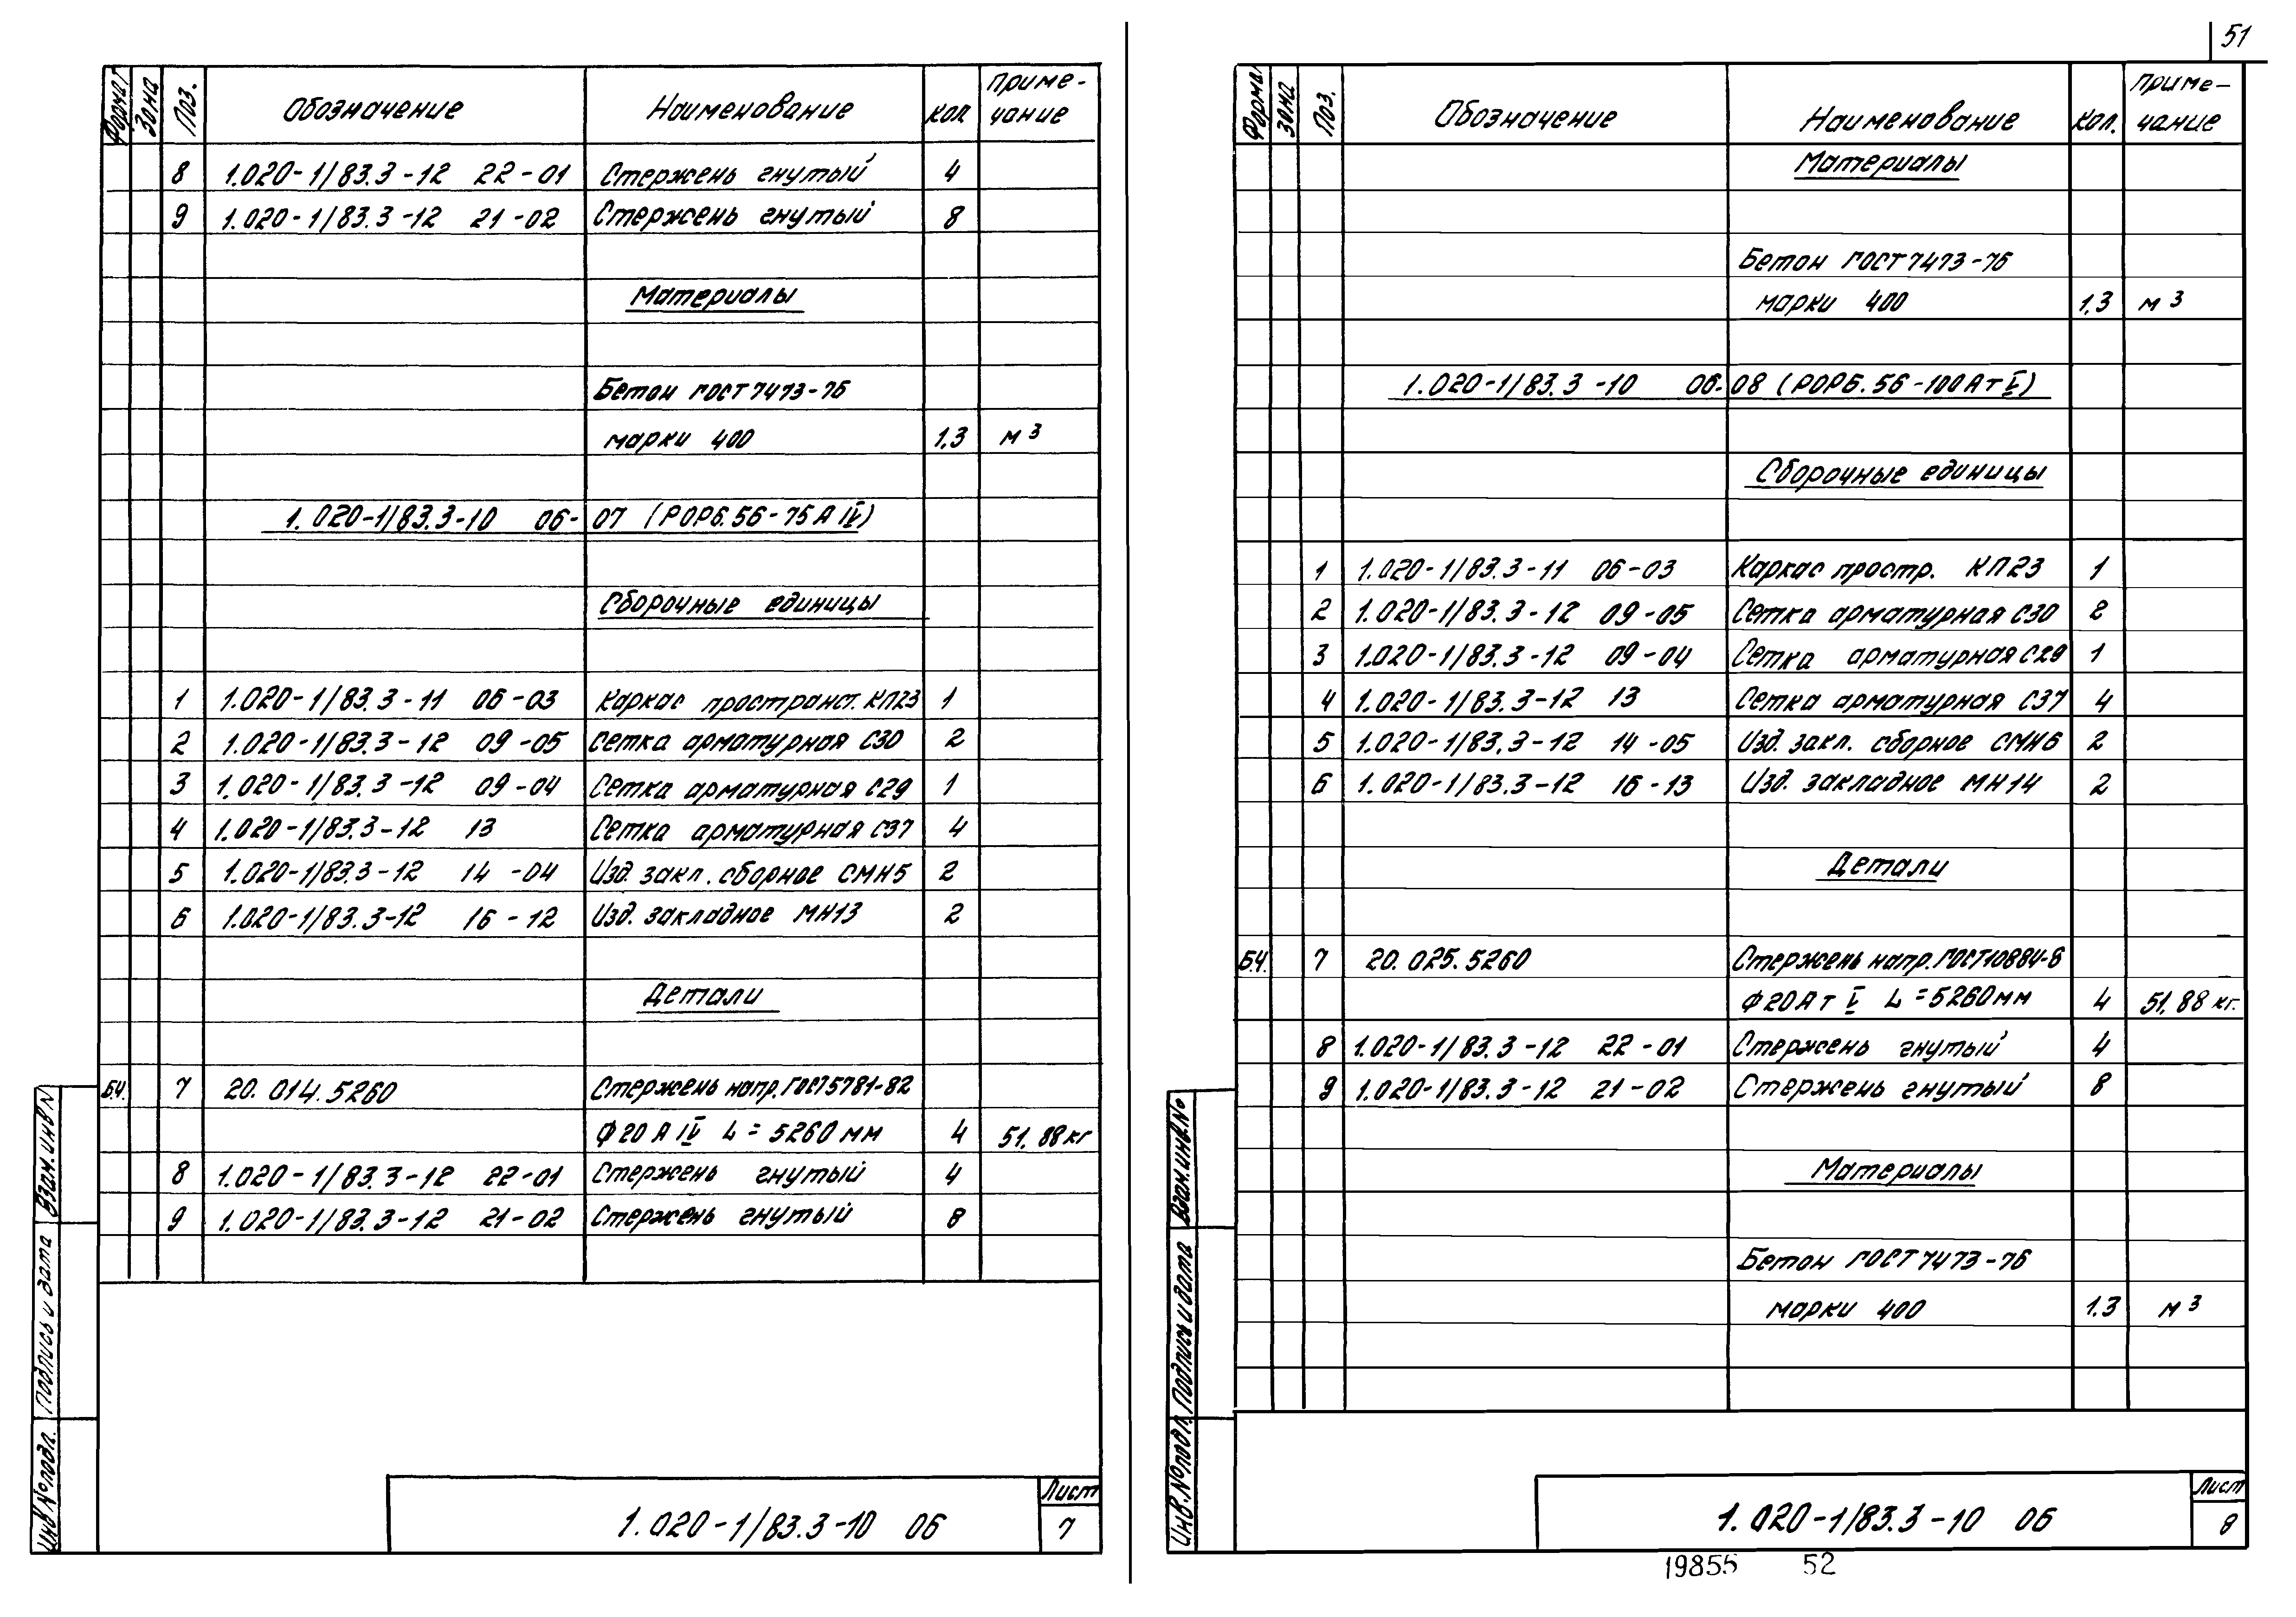 51
Формат Зона Поз. Обозначение Наименование кол Приме-
чание
8 1.020-1/83.3-12 22-01 Стержень гнутый 4
9 1.020-1/83.3-12 21-02 Стержень гнутый 8
Материалы
Бетон ГОСТ 7473-76
марки 400 1.3 м3
1.020-1/83.3-10 06-07 (РОР6.56-75А IV)
Сборочные единицы
1 1.020-1/83.3-11 06-03 Каркас пространст. КП23 1
2 1.020-1/83.3-12 09-05 Сетка арматурная С30 2
3 1.020-1/83.3-12 09-04 Сетка арматурная С29 1
4 1.020-1/83.3-12 13 Сетка арматурная С37 4
5 1.020-1/83.3-12 14-04 Изд. закл. сборное СМН5 2
6 1.020-1/83.3-12 16-12 Изд. закладное МН13 2
Детали
Б.Ч. 7 20.014.5260 Стержень напр. ГОСТ 5781-82
Ф20 А IV L=5260 мм 4 51,88 кг
8 1.020-1/83.3-12 22-01 Стержень гнутый 4
9 1.020-1/83.3-12 21-02 Стержень гнутый 8
Взам. инв N
Подпись и дата
Инв № подл.
1.020-1/83.3-10 06
Лист
7
Формат Зона Поз. Обозначение Наименование Кол. Приме-
чание
Материалы
Бетон ГОСТ 7473-76
марки 400 1,3 м3
1.020-1/83.3-10 06-08 (РОР6.56-100Ат V)
Сборочные единицы
1 1.020-1/83.3-11 06-03 Каркас простр. КП23 1
2 1.020-1/83.3-12 09-05 Сетка арматурная С30 2
3 1.020-1/83.3-12 09-04 Сетка арматурная С29 1
4 1.020-1/83.3-12 13 Сетка арматурная С37 4
5 1.020-1/83.3-12 14-05 Изд. закл. сборное СМН6 2
6 1.020-1/83.3-12 16-13 Изд. закладное МН14 2
Детали
Б.Ч. 7 20.025.5260 Стержень напр. ГОСТ 10884-8
Ф20Ат V L=5260мм 4 51,88 кг.
8 1.020-1/83.3-12 22-01 Стержень гнутый 4
9 1.020-1/83.3-12 21-02 Стержень гнутый 8
Материалы
Бетон ГОСТ 7473-76
марки 400 1.3 м3
Взам. инв. №
Подпись и дата
Инв. № подл.
1.020-1/83.3-10 06
Лист
8
19855 52